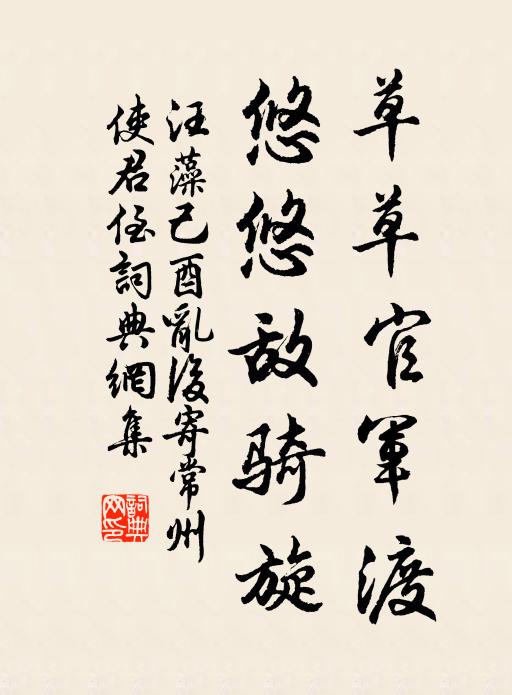 草草官軍渡
悠悠敌骑旋
汪藻己酉亂後寄常州
使君侄詞典網集
詞典
网印